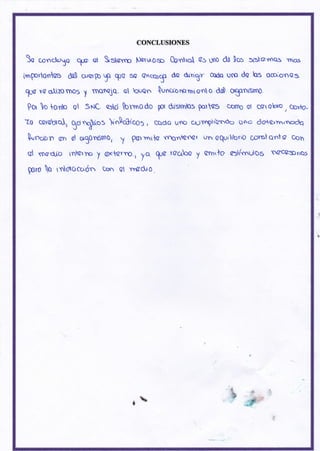 CONCLUSIONES
Se concluye que el Sistema Nervioso Central es uno de los sistemas mas
importantes del cuerpo ya que se encarga de dirigir cada una de las acciones
que realizamos y maneja el buen funcionamiento del organismo.
Por lo tanto el SNC está formado por distintas partes como el cerebro, corte-
za cerebral, ganglios linfáticos, cada uno cumpliendo una determinada
función en el organismo, y permite mantener un equilibrio constante con
el medio interno y externo, ya que recibe y emite estímulos necesarios
para la interacción con el medio.